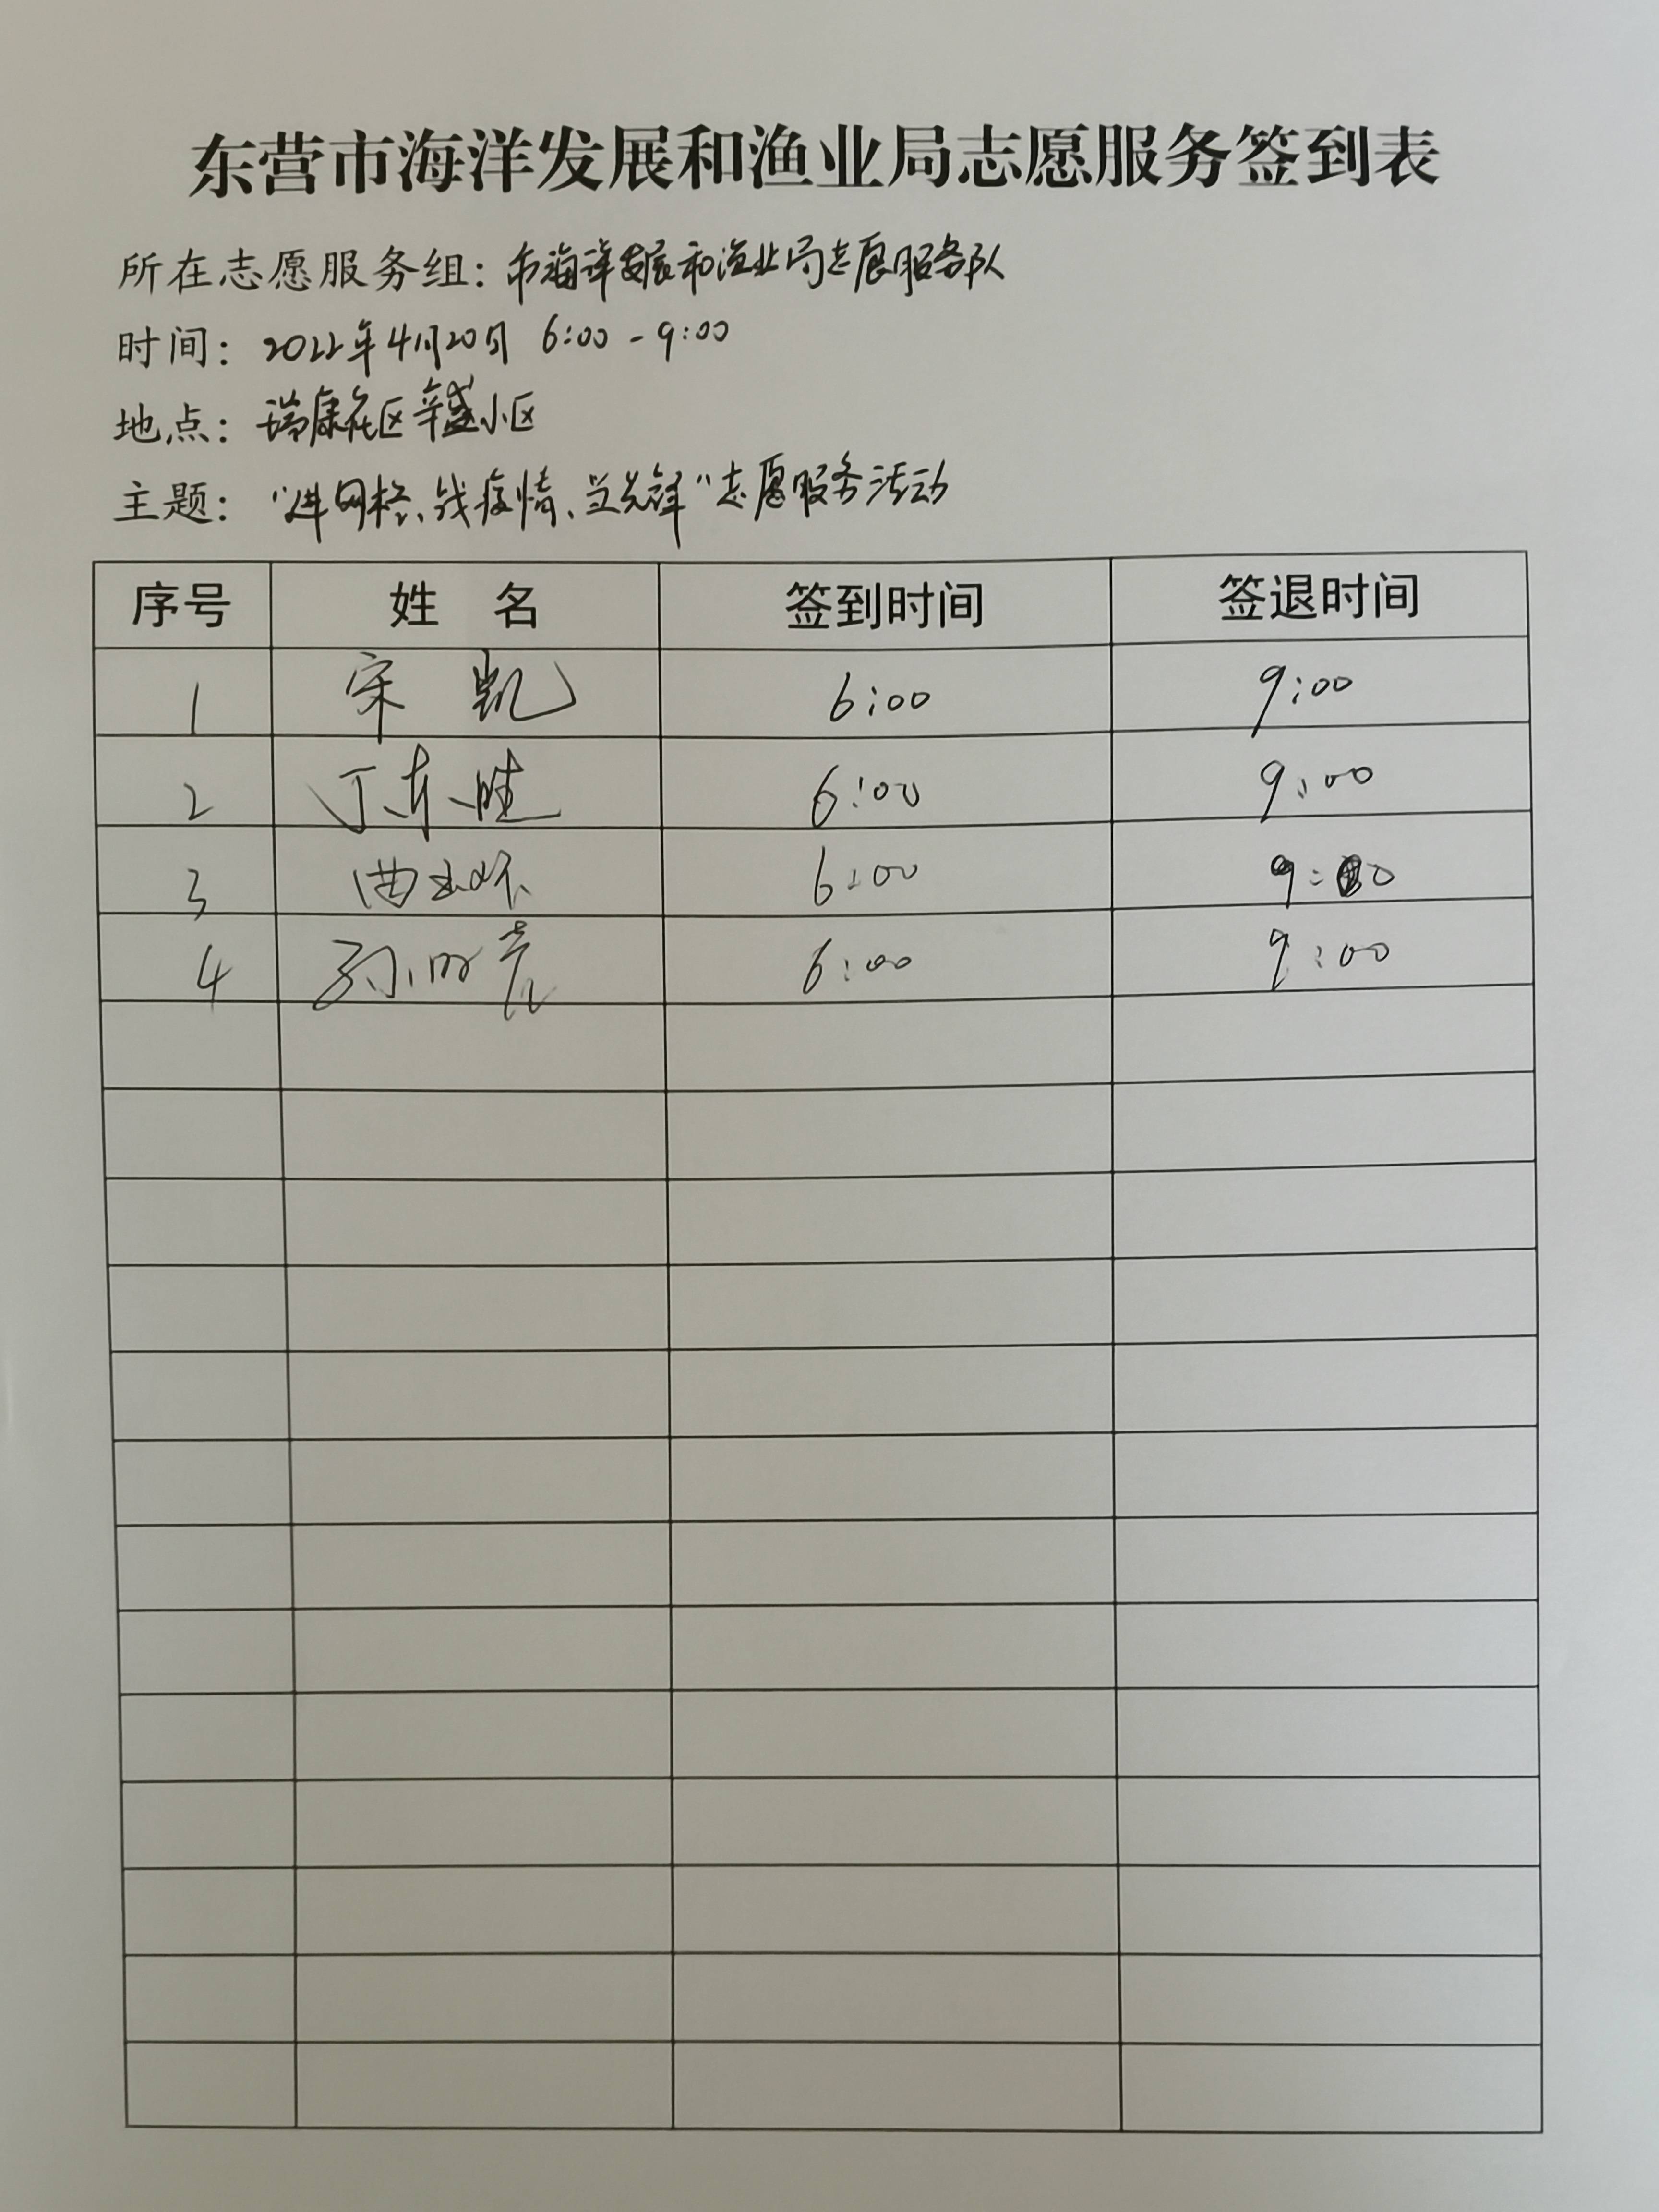 东营市海洋发展和渔业局志愿服务签到表
所在志愿服务组：市海洋发展和渔业局志愿服务队
时间：2022年4月20日 6:00-9:00
地点：瑞康社区辛盛小区
主题："进网格、战疫情、当先锋"志愿服务活动
序号 姓 名 签到时间 签退时间
1 宋 凯 6:00 9:00
2 丁东胜 6:00 9:00
3 曲 6:00 9:00
4 孙明亮 6:00 9:00